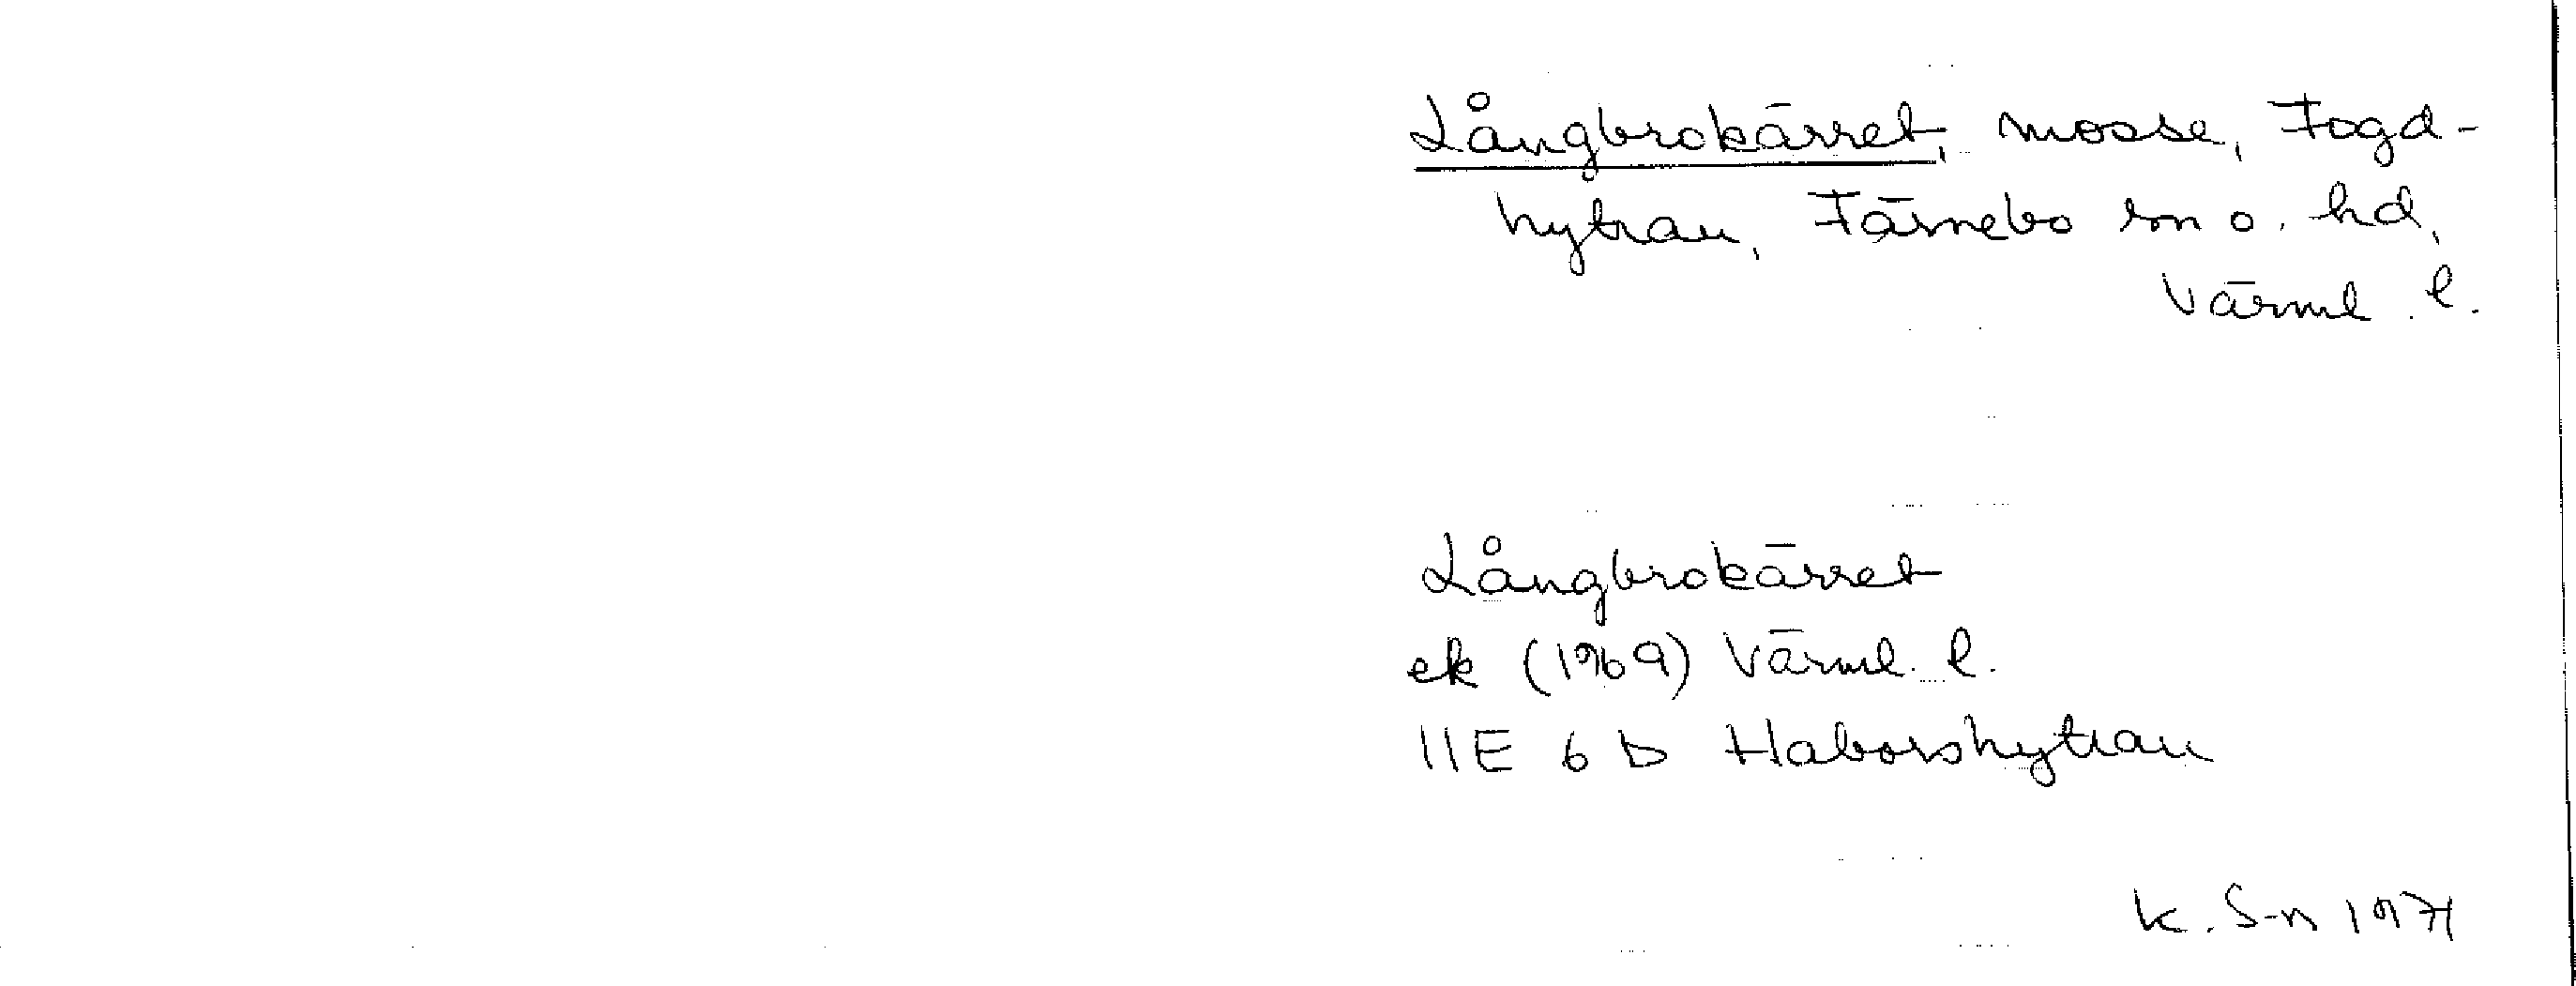 Långbrokärret, mosse, Fogd-
hyttan, Färnebo sn o. hd,
Värml. l.
Långbrokärret
ek (1969) Värml. l.
11E 6 D Haborshyttan
K. S-n 1971